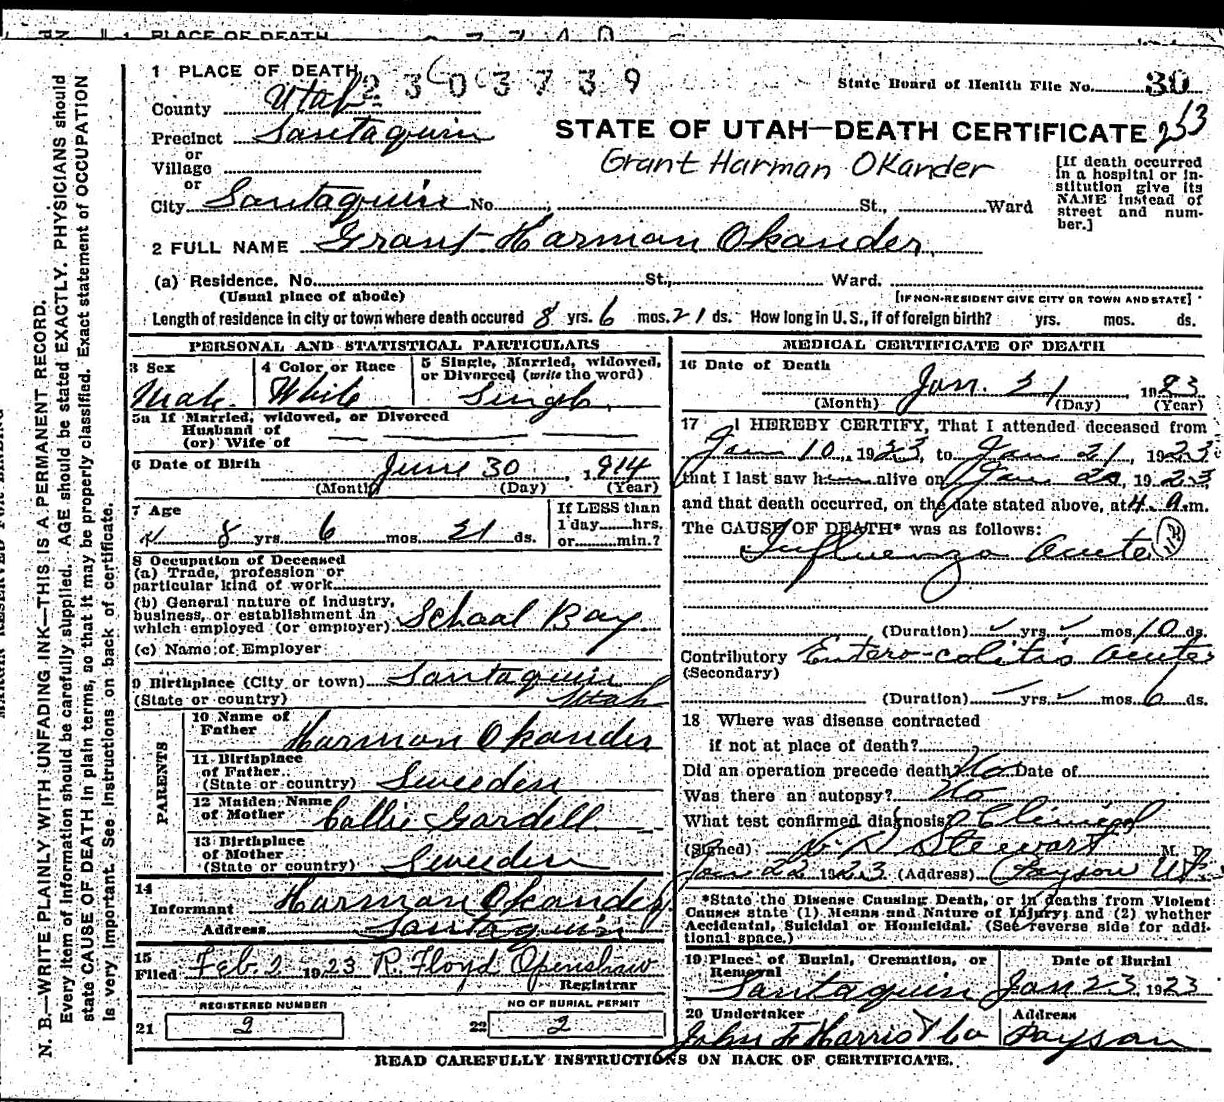 1 PLACE OF DEATH
2303739
State Board of Health File No. 30
County Utah
253
Precinct Santaquin
STATE OF UTAH—DEATH CERTIFICATE
or
Village
Grant Harman Okander
or
City Santaquin No. St., Ward
[If death occurred in a hospital or institution give its NAME instead of street and number.]
2 FULL NAME Grant Harman Okander
(a) Residence. No. St., Ward.
(Usual place of abode)
[IF NON-RESIDENT GIVE CITY OR TOWN AND STATE]
Length of residence in city or town where death occured 8 yrs. 6 mos. 21 ds. How long in U. S., if of foreign birth? yrs. mos. ds.
PERSONAL AND STATISTICAL PARTICULARS
3 Sex
Male
4 Color or Race
White
5 Single, Married, widowed,
or Divorced (write the word)
Single
5a If Married, widowed, or Divorced
Husband of
(or) Wife of
6 Date of Birth June 30, 1914
(Month) (Day) (Year)
7 Age
8 yrs. 6 mos. 21 ds.
If LESS than
1 day hrs.
or min.?
8 Occupation of Deceased
(a) Trade, profession or
particular kind of work
(b) General nature of industry,
business, or establishment in
which employed (or employer) School Boy
(c) Name of Employer
9 Birthplace (City or town) Santaquin
(State or country) Utah
PARENTS
10 Name of
Father Harman Okander
11 Birthplace
of Father
(State or country) Sweeden
12 Maiden Name
of Mother Callie Gardell
13 Birthplace
of Mother
(State or country) Sweeden
14
Informant Harman Okander
Address Santaquin
15
Filed Feb 2 1923 R. Floyd Openshaw
Registrar
REGISTERED NUMBER
21 2
NO OF BURIAL PERMIT
22 2
MEDICAL CERTIFICATE OF DEATH
16 Date of Death
Jan. 21 1923
(Month) (Day) (Year)
17 I HEREBY CERTIFY, That I attended deceased from
Jan 10, 1923, to Jan 21, 1923
that I last saw him alive on Jan 20, 1923,
and that death occurred, on the date stated above, at 4 a.m.
The CAUSE OF DEATH* was as follows:
Influenza acute
(Duration) yrs. mos. 10 ds.
Contributory Entero-colitis acute
(Secondary)
(Duration) yrs. mos. 6 ds.
18 Where was disease contracted
if not at place of death?
Did an operation precede death? No Date of
Was there an autopsy? No
What test confirmed diagnosis? Clinical
(Signed) Stewart M. D.
Jan 22 1923 (Address) Payson Ut.
*State the Disease Causing Death, or in deaths from Violent
Causes state (1) Means and Nature of Injury; and (2) whether
Accidental, Suicidal or Homicidal. (See reverse side for additional space.)
19 Place of Burial, Cremation, or
Removal
Santaquin
Date of Burial
Jan 23 1923
20 Undertaker
John F Harris & Co
Address
Payson
READ CAREFULLY INSTRUCTIONS ON BACK OF CERTIFICATE.
N. B.—WRITE PLAINLY WITH UNFADING INK—THIS IS A PERMANENT RECORD.
Every item of information should be carefully supplied. AGE should be stated EXACTLY. PHYSICIANS should
state CAUSE OF DEATH in plain terms, so that it may be properly classified. Exact statement of OCCUPATION
is very important. See instructions on back of certificate.